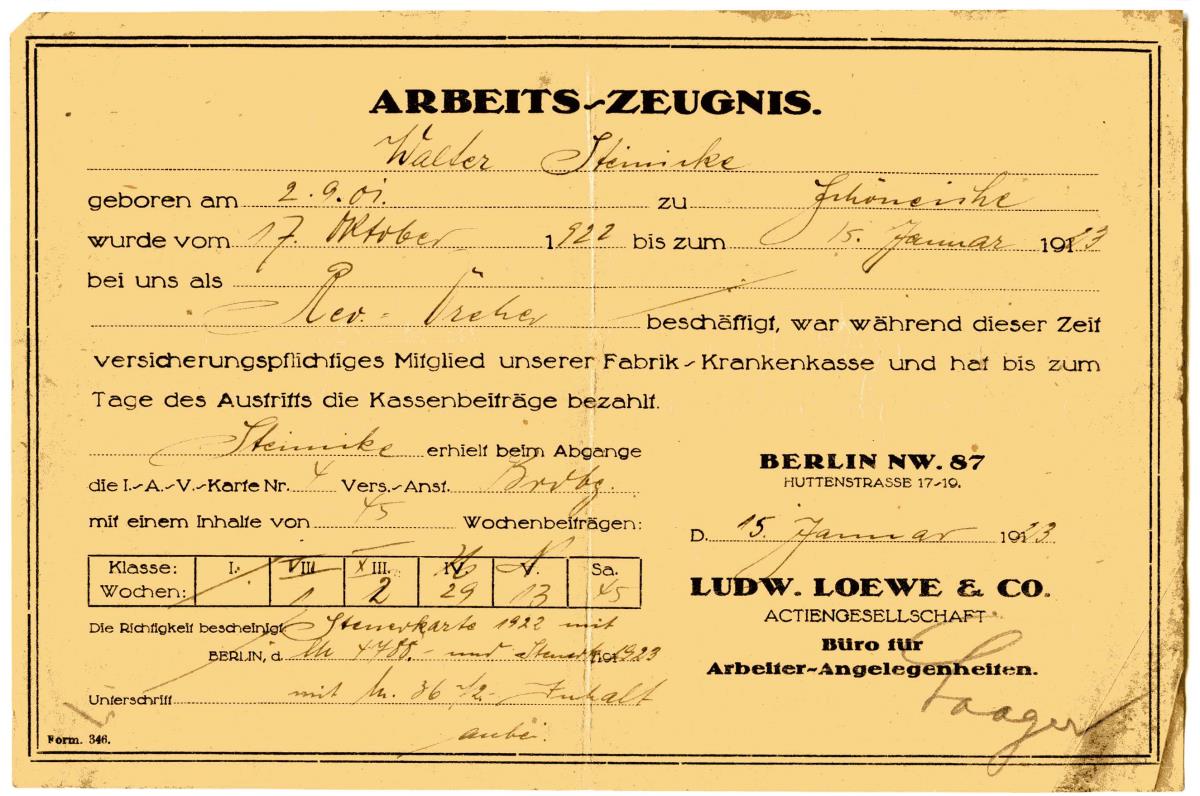 ARBEITS-ZEUGNIS.
Walter Steinicke
geboren am 2.9.01. zu Schöneiche
wurde vom 17. Oktober 1922 bis zum 15. Januar 1923
bei uns als
Rev.- Dreher beschäftigt, war während dieser Zeit
versicherungspflichtiges Mitglied unserer Fabrik-Krankenkasse und hat bis zum
Tage des Austritts die Kassenbeiträge bezahlt.
Steinicke erhielt beim Abgange
die I.-A.-V.-Karte Nr. 4 Vers.-Anst. Brdbg.
mit einem Inhalte von 45 Wochenbeiträgen:
Klasse: I. VII XIII. IV. V. Sa.
Wochen: 1 2 29 13 45
Die Richtigkeit bescheinigt: Steuerkarte 1922 mit
BERLIN, d. M 4788.- und Steuerk. 1923
Unterschrift mit M. 36 Inhalt
anbei.
Form. 346.
BERLIN NW. 87
HUTTENSTRASSE 17-19.
D. 15. Januar 1923
LUDW. LOEWE & CO.
ACTIENGESELLSCHAFT
Büro für
Arbeiter-Angelegenheiten.